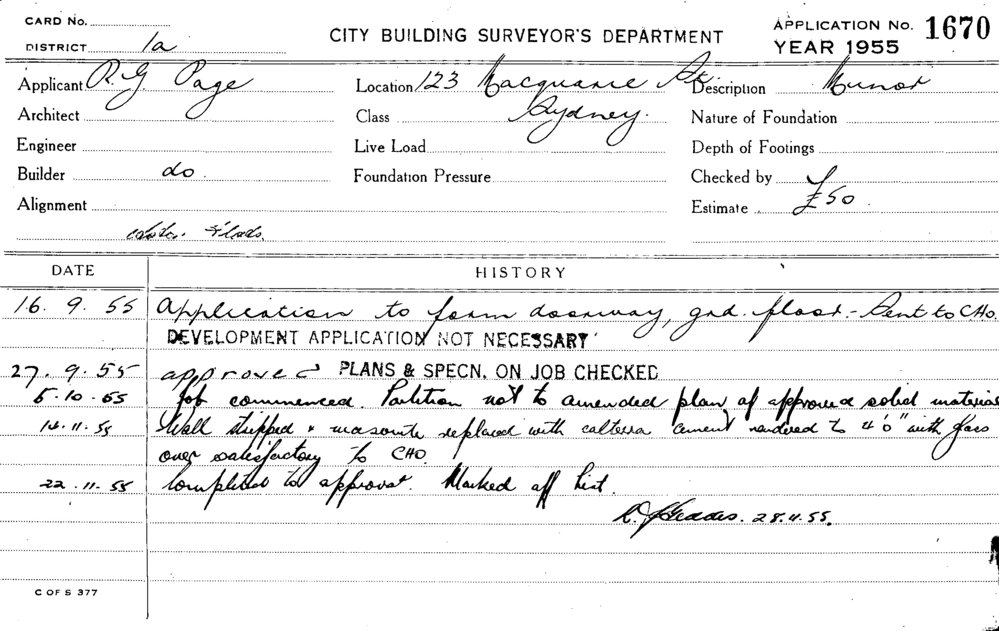 CARD No.
DISTRICT 1a
CITY BUILDING SURVEYOR'S DEPARTMENT
APPLICATION No. 1670
YEAR 1955
Applicant R. G. Page
Location 123 Macquarie St
Description Minor
Architect
Class Sydney.
Nature of Foundation
Engineer
Live Load
Depth of Footings
Builder do
Foundation Pressure
Checked by
Alignment
Estimate £50.
DATE
HISTORY
16. 9. 55 Application to form doorway, grd. floor. - Sent to CHO.
DEVELOPMENT APPLICATION NOT NECESSARY
27. 9. 55 approved PLANS & SPECN. ON JOB CHECKED
5.10.55 Job commenced. Partition not to amended plan of approved solid material
14.11.55 Wall stripped & masonite replaced with cement rendered to 4'0" with glass
over satisfactory to CHO.
22.11.55 Completed to approval. Marked off list.
28.11.55.
C OF S 377